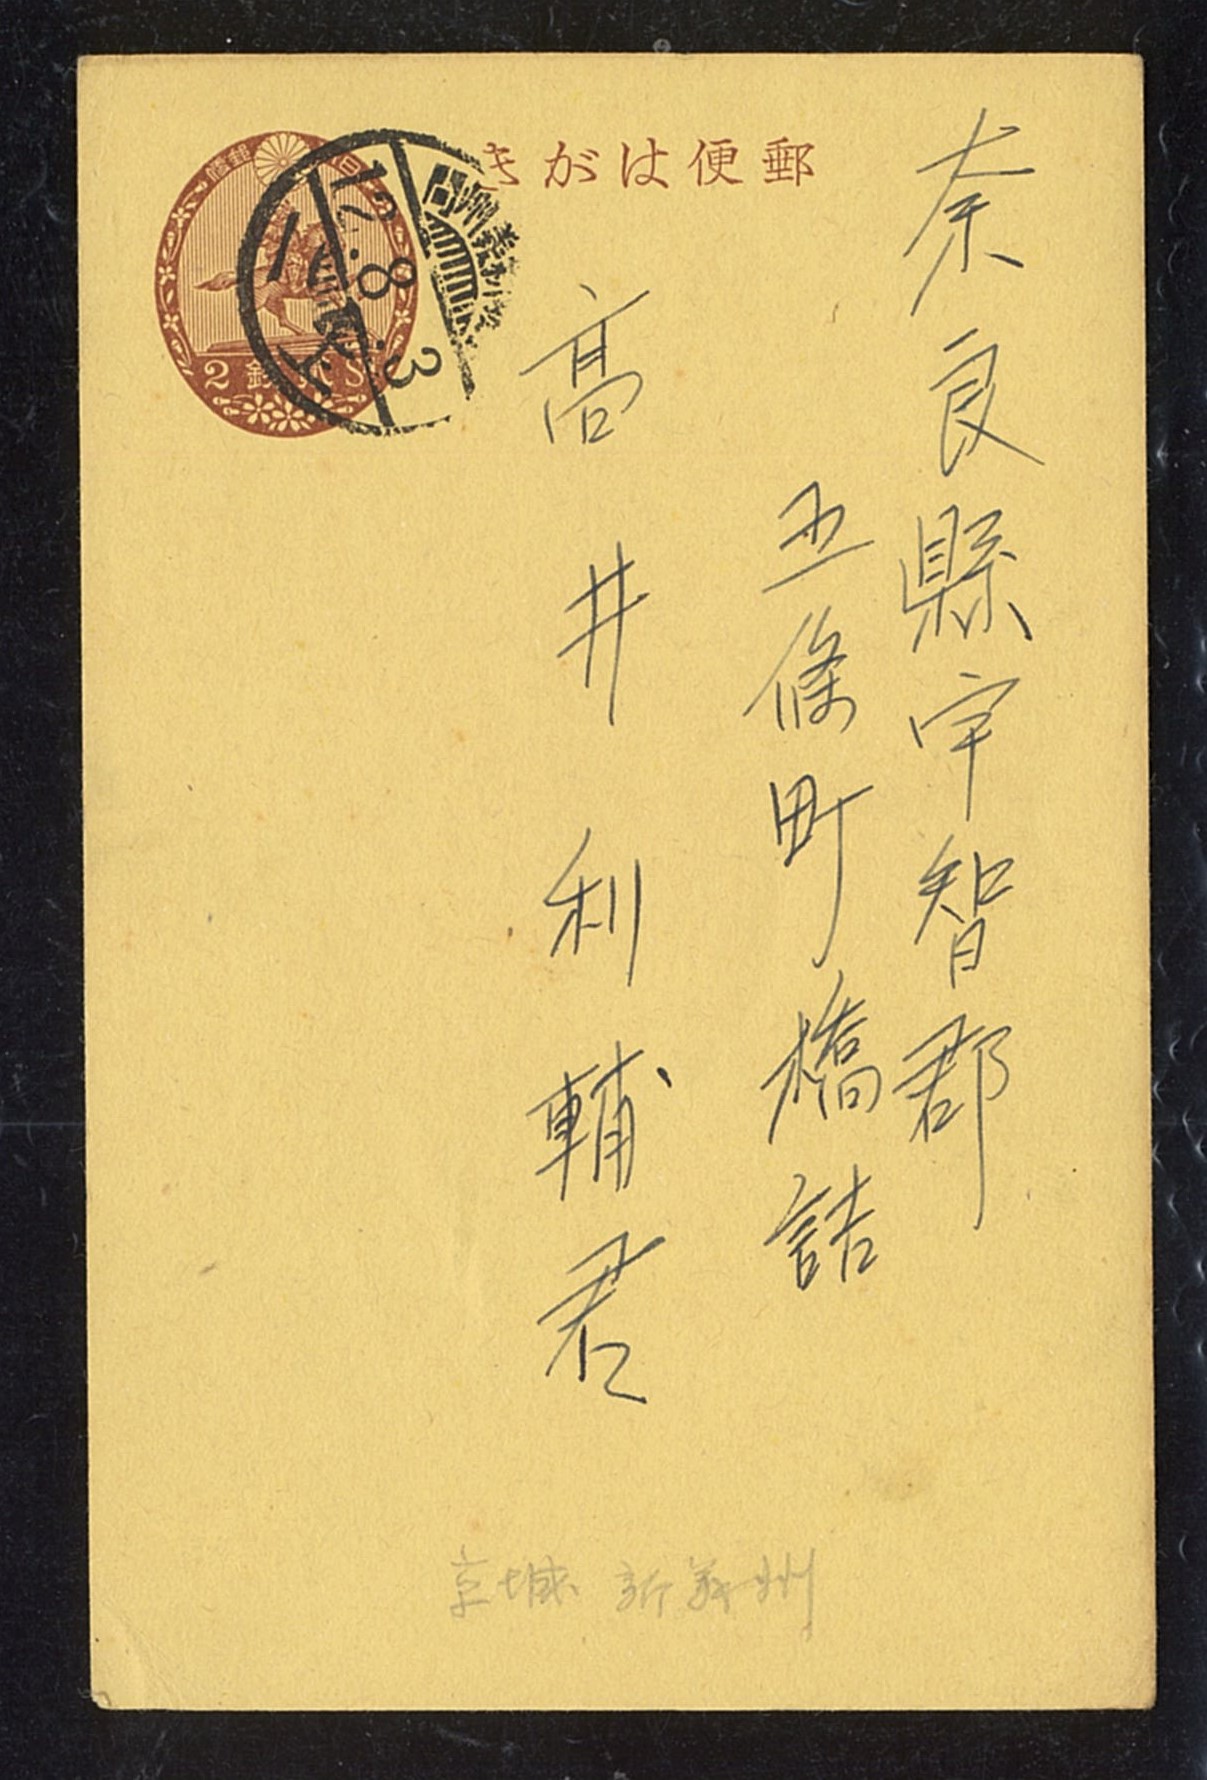 郵便はがき
奈良縣宇智郡
五條町橋詰
高井利輔君
12.8.3
2 S
京城 新義州